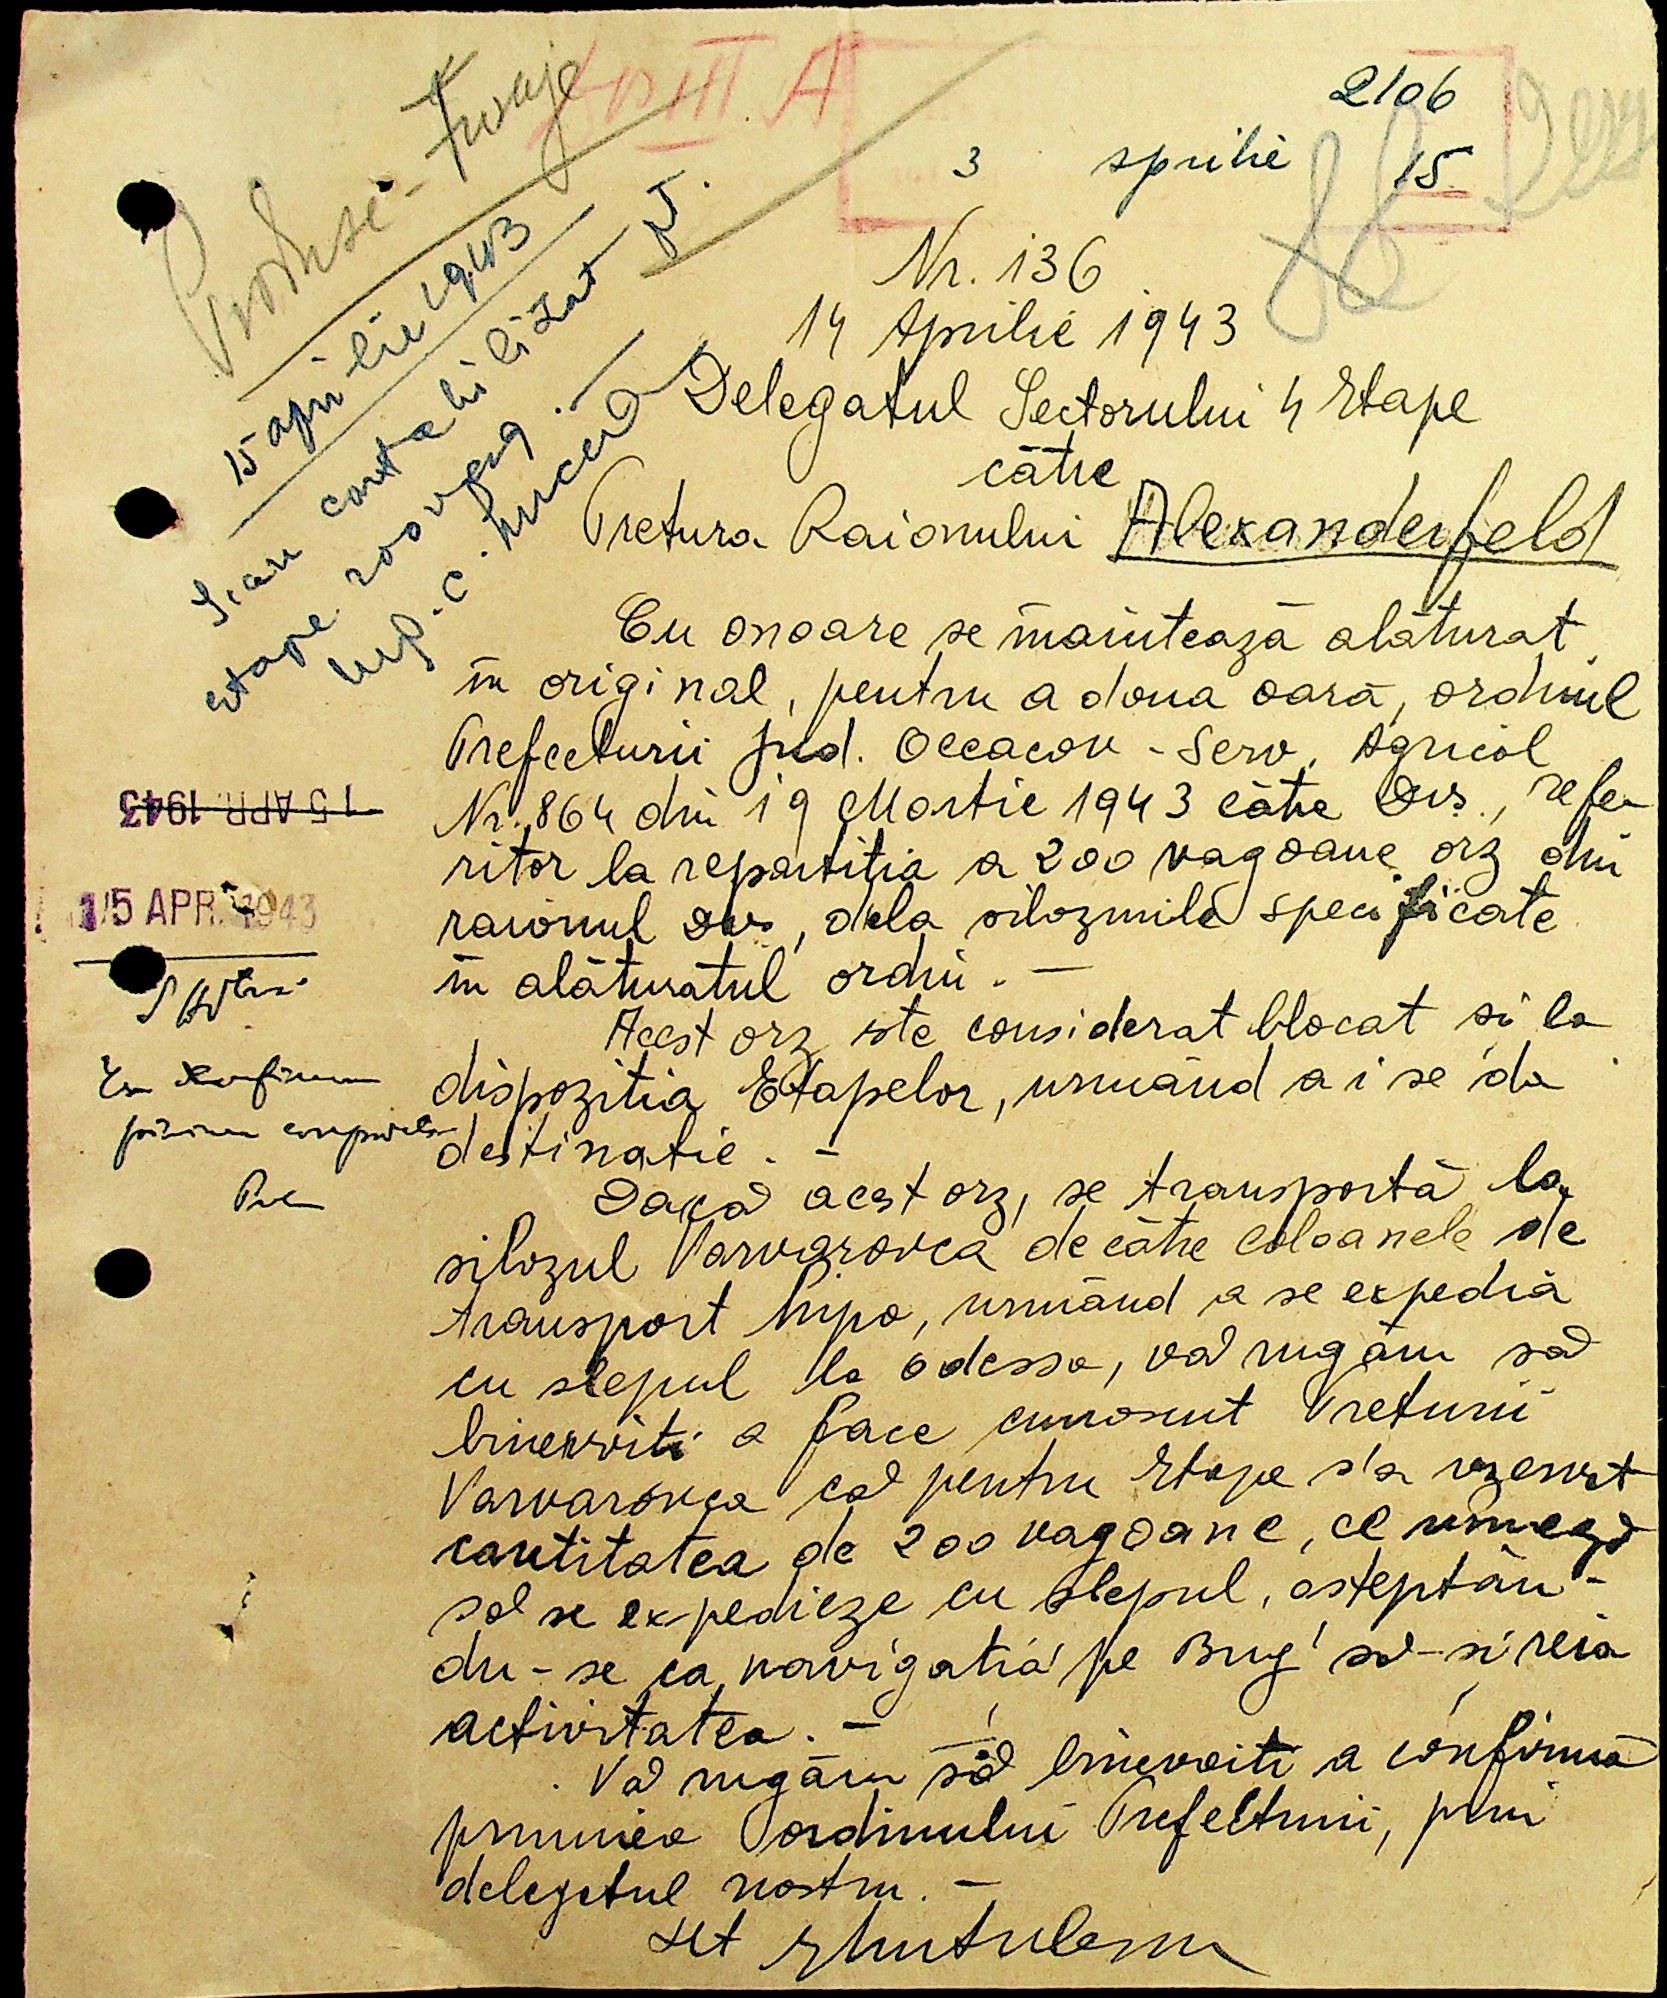 2106
3 aprilie 15
Nr. 136
14 Aprilie 1943
Delegatul Sectorului 4 Etape
către
Pretura Raionului Alexanderfeld
Cu onoare se înaintează alăturat
în original, pentru a doua oară, ordinul
Prefecturii Jud. Oceacov - Serv. Agricol
Nr. 864 din 19 Martie 1943 către Dvs., refe-
ritor la repartiția a 200 vagoane orz din
raionul Dvs, dela silozurile specificate
în alăturatul ordin. —
Acest orz este considerat blocat și la
dispoziția Etapelor, urmând a i se da
destinație. —
Dacă acest orz, se transportă la
silozul Varvarovca de către coloanele de
transport hipo, urmând a se expedia
cu șlepul la Odessa, vă rugăm să
binevoiți a face cunoscut Preturii
Varvarovca că pentru Etape s'a rezervat
cantitatea de 200 vagoane, ce urmează
să se expedieze cu șlepul, așteptân-
du-se ca navigația pe Bug să-și reia
activitatea. —
Vă rugăm să binevoiți a confirma
primirea ordinului Prefecturii, prin
delegatul nostru. —
Produse - Furaje
III A
15 aprilie 1943
S'au contabilizat pt.
etape 200 vag. —
15 APR. 1943
15 APR. 1943
Se confirma
primirea